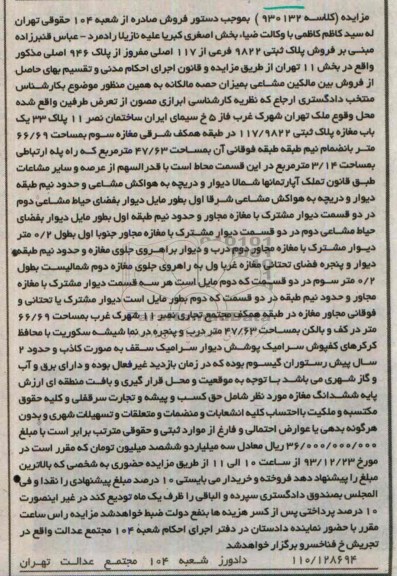 مزایده (کلاسه ۹۳۰۱۳۲ ) بموجب دستور فروش صادره از شعبه ۱۰۴ حقوقی تهران
له سید کاظم کاظمی با وکالت ضیاء بخش اصغری کبریا علیه نازیلا رادمرد - عباس قنبرزاده
مبنی بر فروش پلاک ثبتی ۹۸۲۲ فرعی از ۱۱۷ اصلی مفروز از پلاک ۹۴۶ اصلی مذکور
واقع در بخش ۱۱ تهران از طریق مزایده و قانون اجرای احکام مدنی و تقسیم بهای حاصل
از فروش بین مالکین مشاعی بمیزان حصه مالکانه به همین منظور موضوع بکارشناس
منتخب دادگستری ارجاع که نظریه کارشناسی ابرازی مصون از تعرض طرفین واقع شده
محل وقوع ملک تهران شهرک غرب فاز ۵ خ سیمای ایران ساختمان نصر ۱۱ پلاک ۲۳ یک
باب مغازه پلاک ثبتی ۱۱۷/۹۸۲۲ در طبقه همکف شرقی مغازه سوم بمساحت ۶۶/۶۹
متر بانضمام نیم طبقه طبقه فوقانی آن بمساحت ۴۷/۶۳ مترمربع که راه پله ارتباطی
بمساحت ۳/۱۴ مترمربع در این قسمت محاط است با قدرالسهم از عرصه و سایر مشاعات
طبق قانون تملک آپارتمانها شمالا دیوار و دریچه به هواکش مشاعی و حدود نیم طبقه
دیوار و دریچه به هواکش مشاعی شرقا اول بطور مایل دیوار بفضای حیاط مشاعی دوم
در دو قسمت دیوار مشترک با مغازه مجاور و حدود نیم طبقه اول بطور مایل دیوار بفضای
حیاط مشاعی دوم در دو قسمت دیوار مشترک با مغازه مجاور جنوبا اول بطول ۰/۲ متر
دیوار مشترک با مغازه مجاور دوم درب و دیوار براهروی جلوی مغازه و حدود نیم طبقه
دیوار و پنجره فضای تحتانی مغازه غربا ول به راهروی جلوی مغازه دوم شمالیست بطول
۰/۲ متر سوم در دو قسمت که دوم مایل است هر سه قسمت دیوار مشترک با مغازه
مجاور و حدود نیم طبقه در دو قسمت که دوم بطور مایل است دیوار مشترک یا تحتانی و
فوقانی مجاور مغازه در طبقه همکف مجتمع تجاری نصر ۱۱ شهرک غرب بمساحت ۶۶/۶۹
متر در کف و بالکن بمساحت ۴۷/۶۳ متر درب و پنجره در نما شیشه سکوریت با محافظ
کرکره‌ای کفپوش سرامیک پوشش دیوار سرامیک سقف به صورت کاذب و حدود ۲
سال پیش رستوران گیسوم بوده که در زمان بازدید غیرفعال بوده و دارای برق و آب
و گاز شهری می باشد با توجه به موقعیت و محل قرار گیری و بافت منطقه ای ارزش
پایه ششدانگ مغازه مورد نظر شامل حق کسب و پیشه و تجارت سرقفلی و کلیه حقوق
مکتسبه و ملکیت بااحتساب کلیه انشعابات و منضمات و متعلقات و تسهیلات شهری و بدون
هرگونه بدهی یا عوارض احتمالی و فارغ از موارد ثبتی و حقوقی مترتب برابر است با مبلغ
۳۶/۰۰۰/۰۰۰/۰۰۰ ریال معادل سه میلیارد و ششصد میلیون تومان که مقرر است در
مورخ ۹۳/۱۲/۲۳ از ساعت ۱۰ الی ۱۱ از طریق مزایده حضوری به شخصی که بالاترین
مبلغ را پیشنهاد دهد فروخته و خریدار می بایستی ۱۰ درصد مبلغ پیشنهادی را نقدا و فی
المجلس بصندوق دادگستری سپرده و الباقی را ظرف یک ماه تودیع کند در غیر اینصورت
۱۰ درصد پرداختی پس از کسر هزینه ها بنفع دولت ضبط خواهدشد مزایده راس ساعت
مقرر با حضور نماینده دادستان در دفتر اجرای احکام شعبه ۱۰۴ مجتمع عدالت واقع در
تجریش خ فناخسرو برگزار خواهدشد
۱۱۰/۱۲۸۶۹۴ دادورز شعبه ۱۰۴ مجتمع عدالت تهران